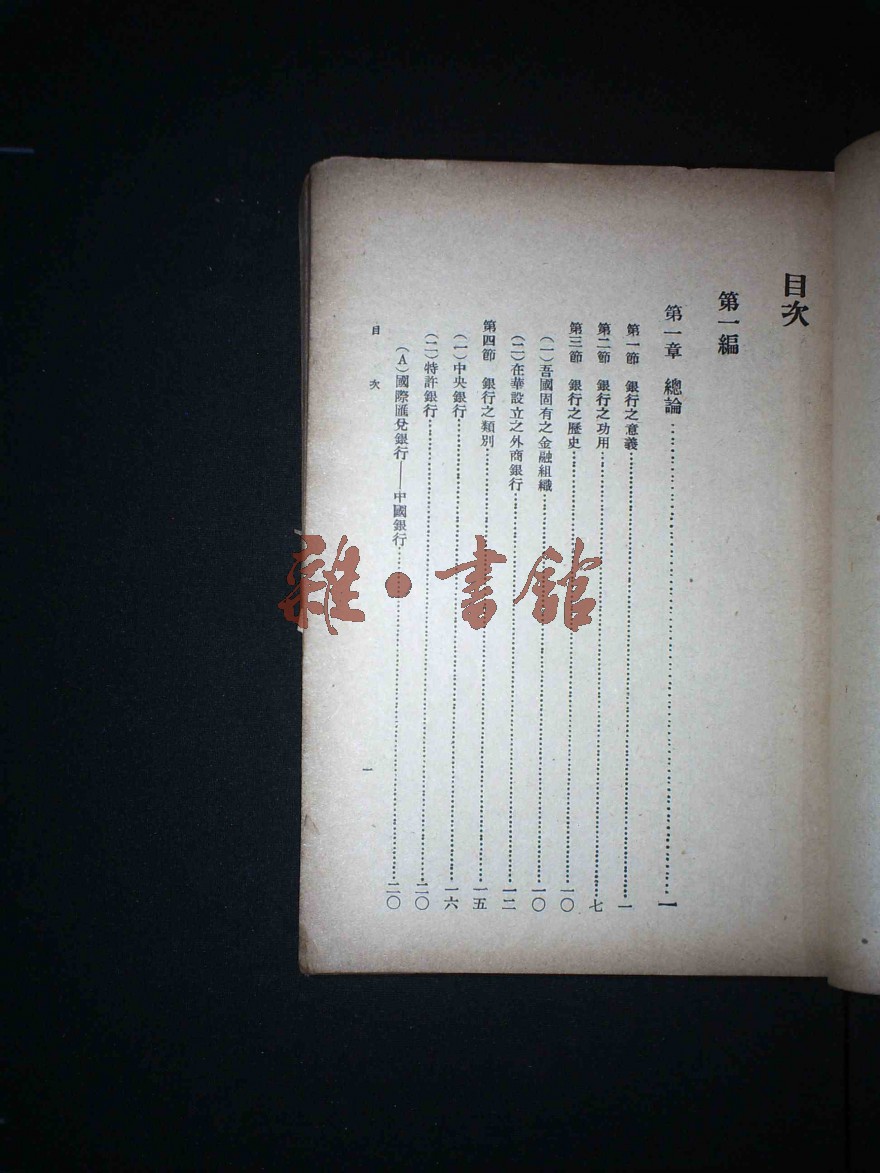 目次
第一編
第一章　總論…一
第一節　銀行之意義…一
第二節　銀行之功用…七
第三節　銀行之歷史…一〇
（一）吾國固有之金融組織…一〇
（二）在華設立之外商銀行…一二
第四節　銀行之類別…一五
（一）中央銀行…一六
（二）特許銀行…二〇
（A）國際匯兌銀行——中國銀行…二〇
目　次
一
雜·書館